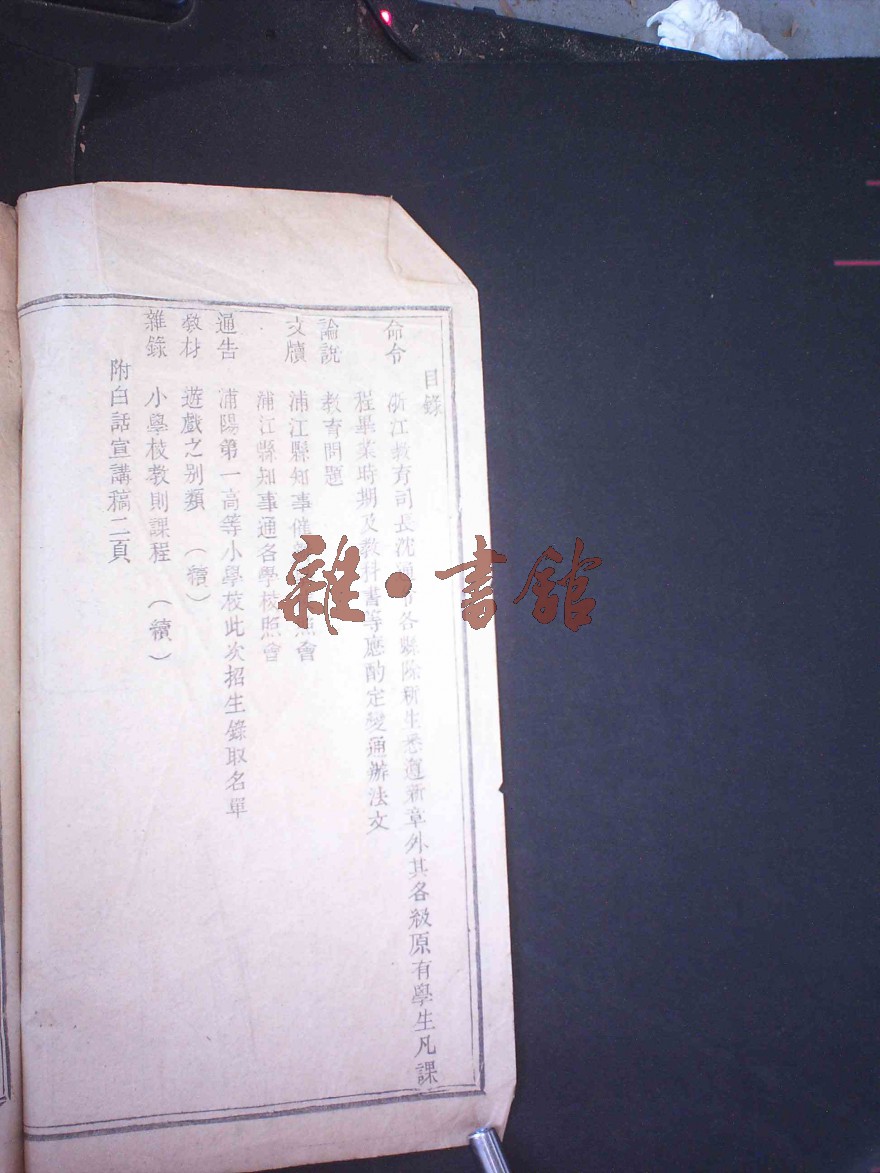 目錄
命令
浙江教育司長沈通 各縣除新生悉遵新章外其各級原有學生凡課
程畢業時期及教科書等應酌定變通辦法文
論説
教育問題
文牘
浦江縣知事催 照會
浦江縣知事通各學校照會
通告
浦陽第一高等小學校此次招生錄取名單
教材
遊戲之别類 (續)
雜錄
小學校教則課程 (續)
附白話宣講稿二頁
雜·書館